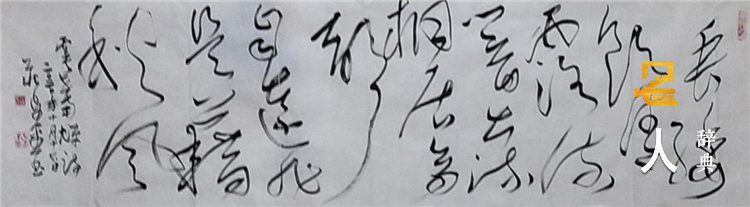 垂緌
飲清
露流
響出疏
桐居高
聲
自遠非
是藉
秋風
虞世南蝉诗
名人辞典